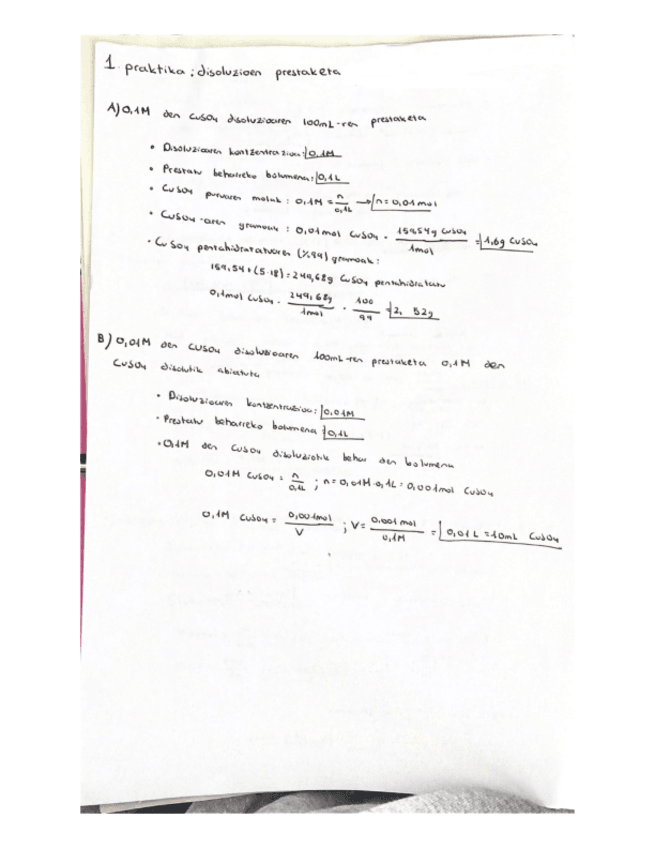 1. praktika: disoluzioen prestaketa
A) 0,1M den CuSO4 disoluzioaren 100mL-ren prestaketa
• Disoluzioaren kontzentrazioa: 0,1M
• Prestatu beharreko bolumena: 0,1L
• CuSO4 puruaren molak: 0,1M = n/0,1L → n = 0,01mol
• CuSO4-aren gramoak: 0,01mol CuSO4 · 159,54g CuSO4/1mol = 1,6g CuSO4
• CuSO4 pentahidratatuaren (%99) gramoak:
159,54 + (5·18) = 249,68g CuSO4 pentahidratatu
0,1mol CuSO4 · 249,68g/1mol · 100/99 = 2,52g
B) 0,01M den CuSO4 disoluzioaren 100mL-ren prestaketa 0,1M den
CuSO4 disolutik abiatuta
• Disoluzioaren kontzentrazioa: 0,01M
• Prestatu beharreko bolumena: 0,1L
• 0,1M den CuSO4 disoluziotik behar den bolumena
0,01M CuSO4 = n/0,1L ; n = 0,01M·0,1L = 0,001mol CuSO4
0,1M CuSO4 = 0,001mol/V ; V = 0,001mol/0,1M = 0,01L = 10mL CuSO4